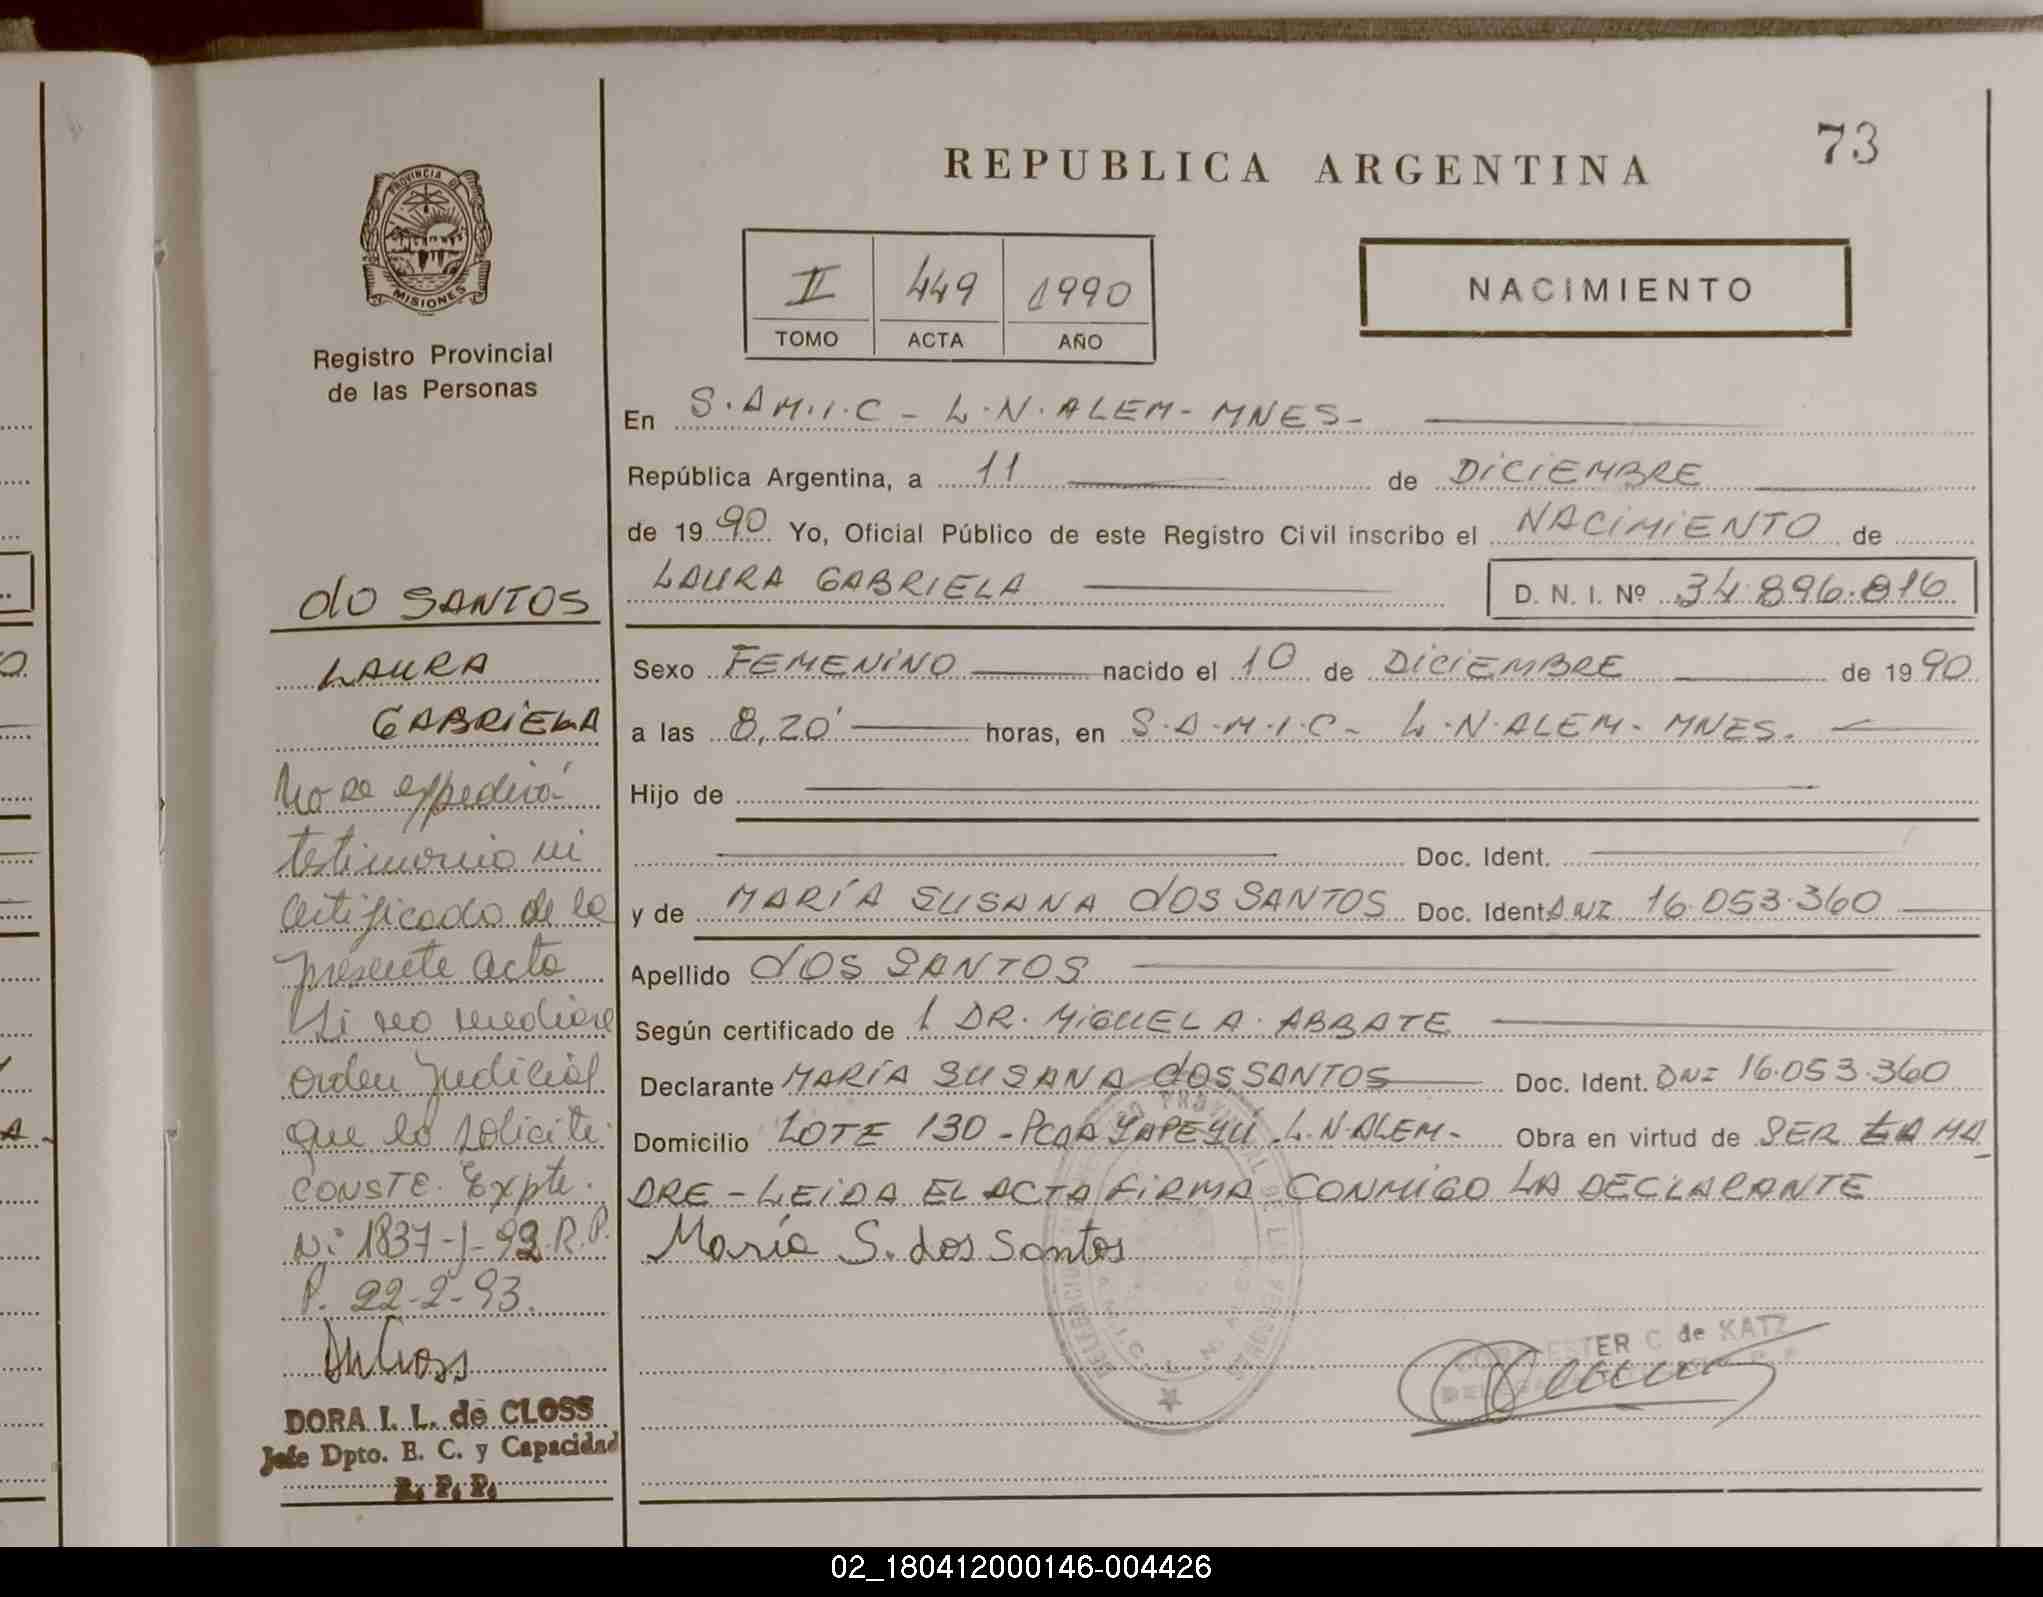 73
REPUBLICA ARGENTINA
PROVINCIA DE
MISIONES
II 449 1990
TOMO ACTA AÑO
NACIMIENTO
Registro Provincial
de las Personas
En S.A.M.I.C - L.N.ALEM - MNES -
República Argentina, a 11 de DICIEMBRE
de 1990 Yo, Oficial Público de este Registro Civil inscribo el NACIMIENTO de
LAURA GABRIELA D. N. I. Nº 34.896.816
Sexo FEMENINO nacido el 10 de DICIEMBRE de 1990
a las 8,20' horas, en S.A.M.I.C - L.N.ALEM - MNES.
Hijo de
Doc. Ident.
y de MARÍA SUSANA dOS SANTOS Doc. Ident. DNI 16.053.360
Apellido dOS SANTOS
Según certificado de DR. MIGUEL A. ABBATE
Declarante MARÍA SUSANA dOS SANTOS Doc. Ident. DNI 16.053.360
Domicilio LOTE 130 - PCAA YAPEYU L.N.ALEM - Obra en virtud de SER LA MA
DRE - LEIDA EL ACTA FIRMA CONMIGO LA DECLARANTE
María S. dos Santos
ESTER C de KATZ
dO SANTOS
LAURA
GABRIELA
No se expedirá
testimonio ni
certificado de la
presente acta
si no mediare
orden judicial
que lo solicite.
CONSTE. Expte.
Nº 1837-J-92 R.P.
P. 22-2-93.
DORA I. L. de CLOSS
Jefe Dpto. E. C. y Capacidad
R. P. P.
02_180412000146-004426